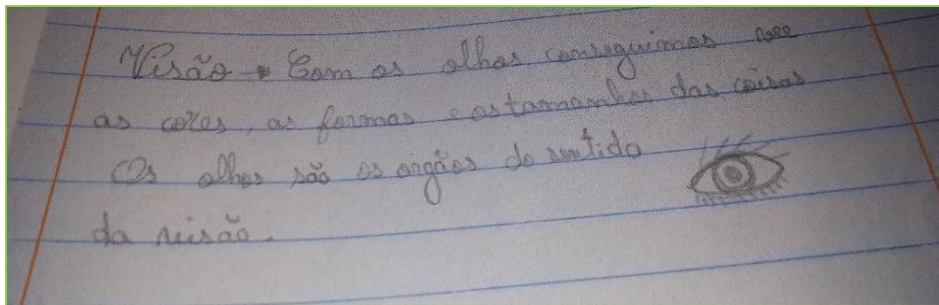 Visão → Com os olhos conseguimos ver
as cores, as formas e os tamanhos das coisas
Os olhos são os orgãos do sentido
da visão.